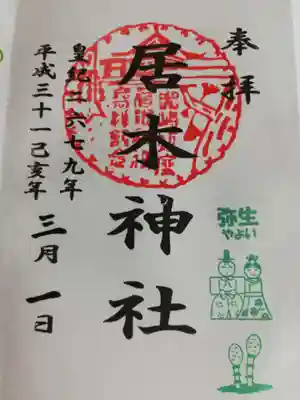 奉拝
居木神社
弥生
やよい
皇紀二六七九年
平成三十一己亥年
三月一日